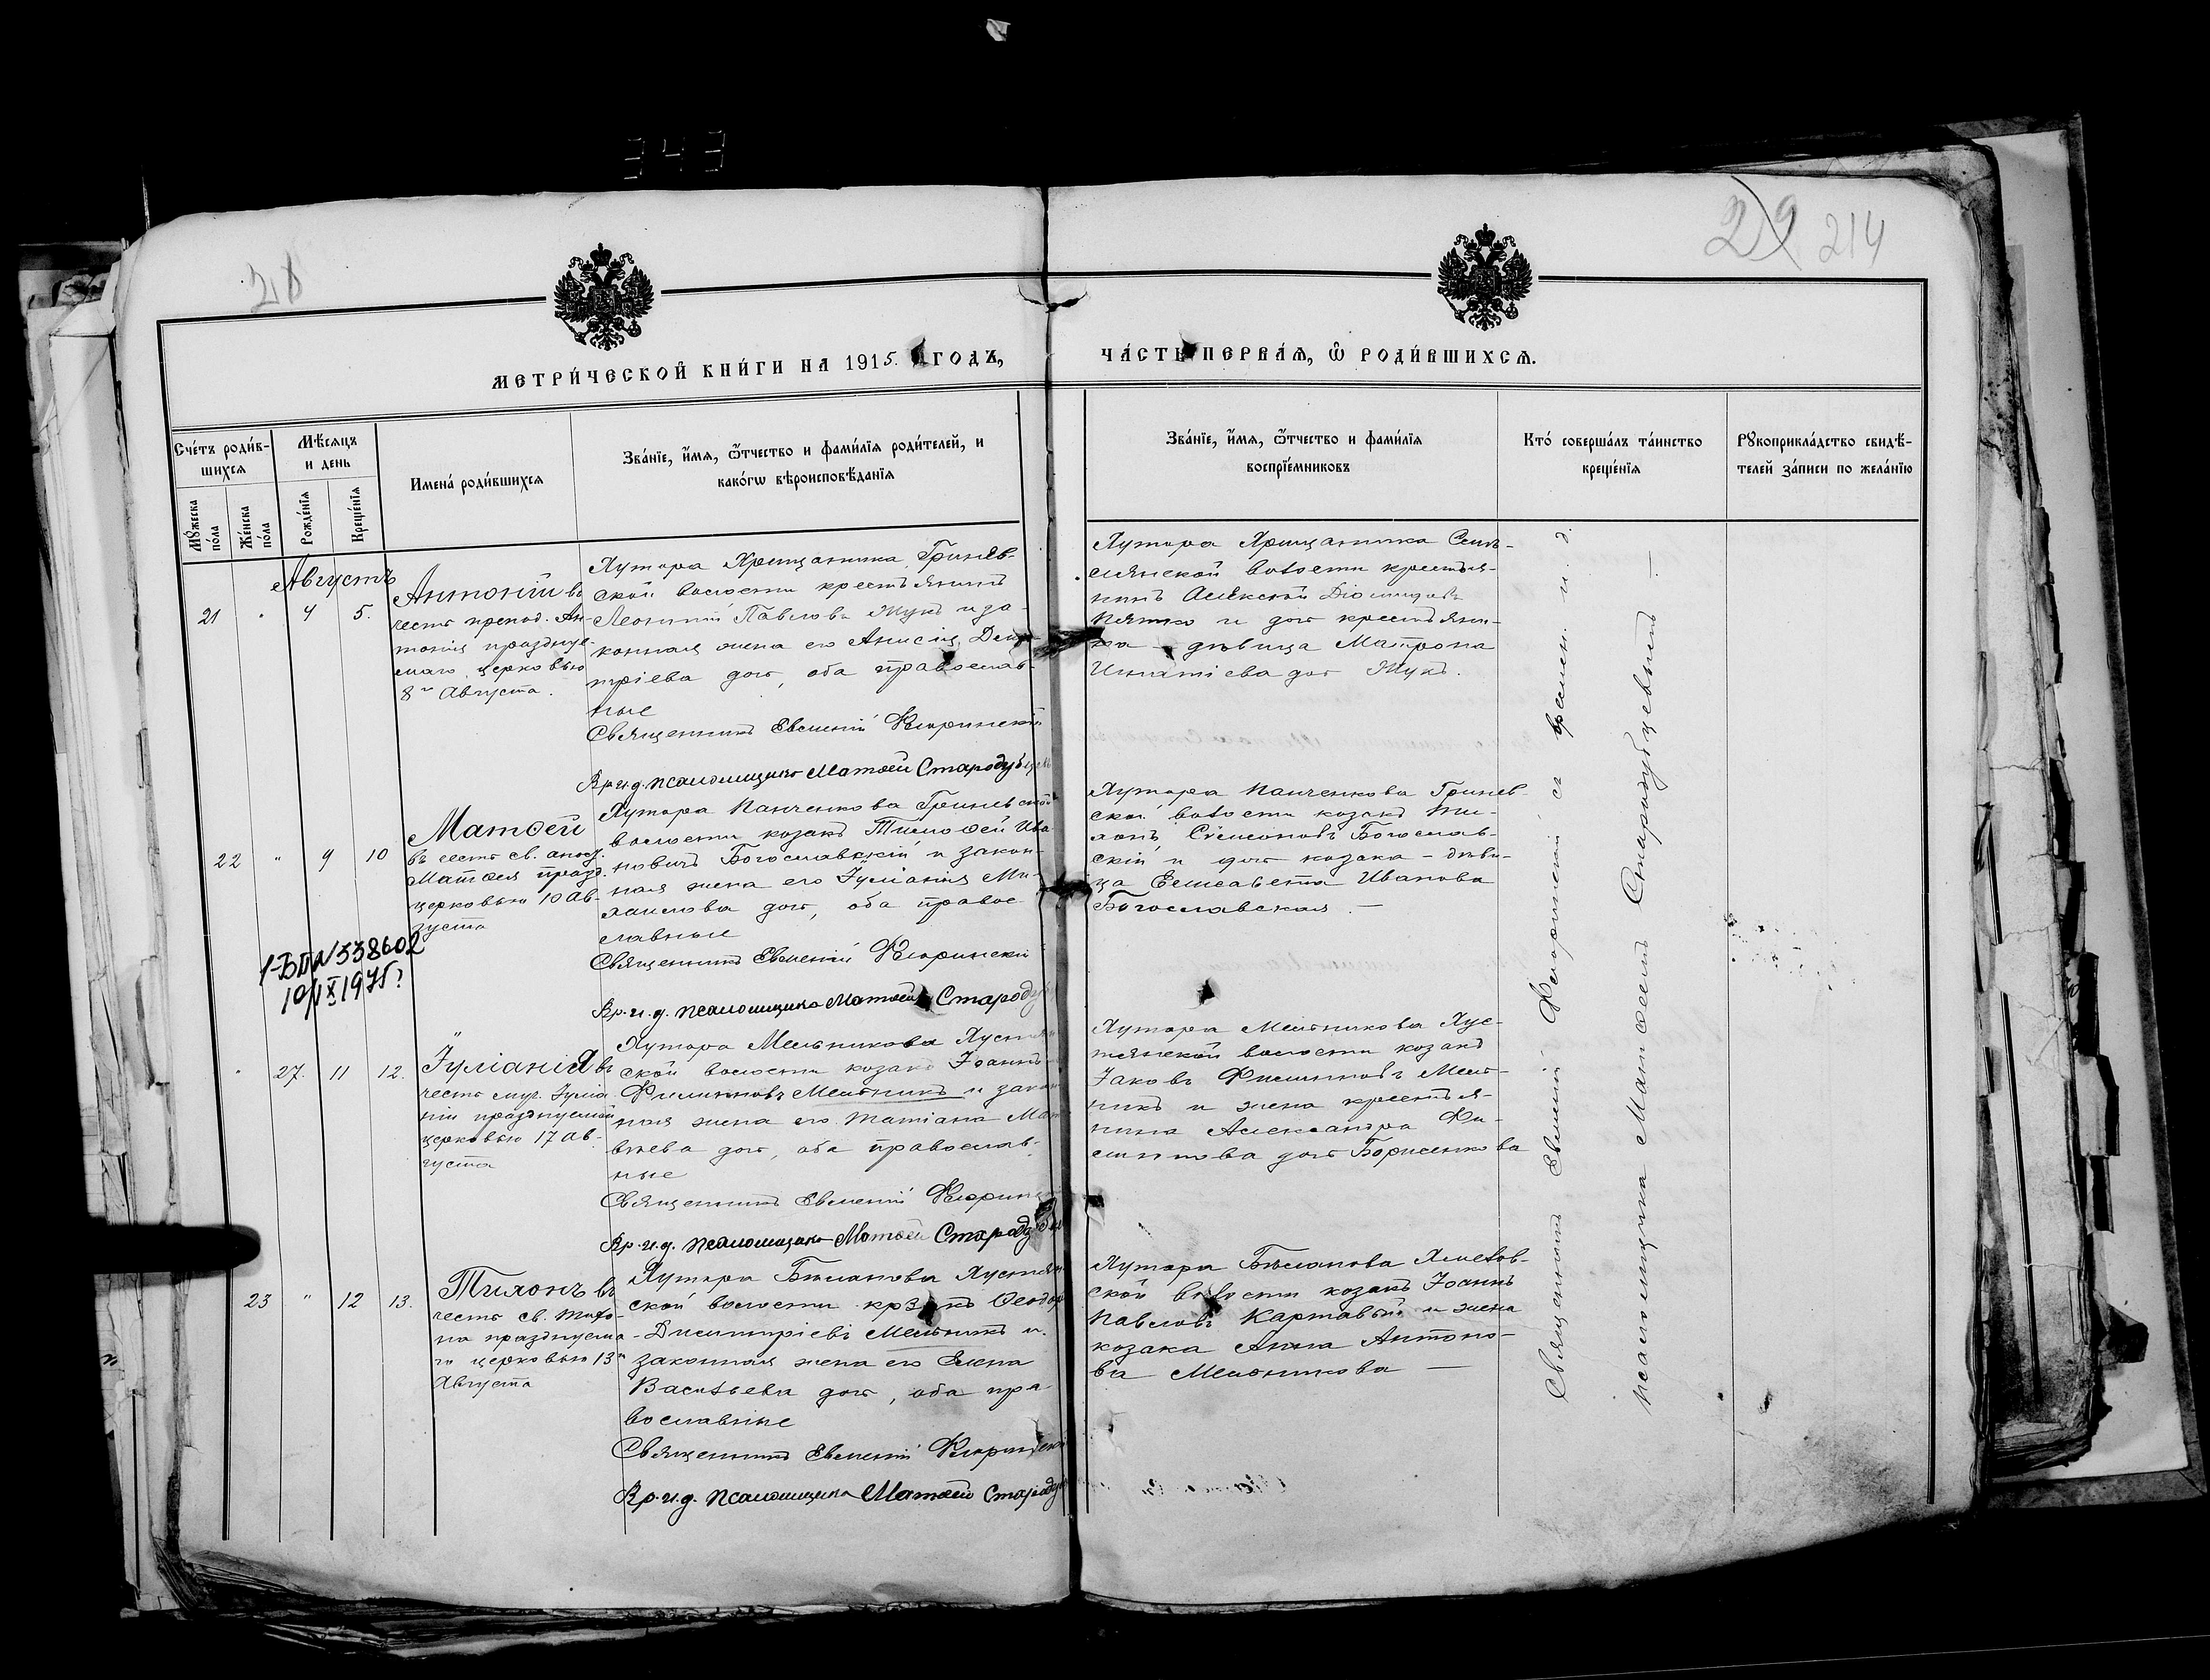 343
28
29 214
МЕТРИ́ЧЕСКОЙ КНИ́ГИ НА 1915. ГОДЪ,
ЧА́СТЬ ПЕРВА́Я, Ѿ РОДИ́ВШИХСЯ.
Сче́тъ роди́в-
шихся
Мꙋ́жеска
по́ла
Же́нска
по́ла
Мѣ́сяцъ
и день
Рожде́нїя
Креще́нїя
Имена́ роди́вшихся
Зва́нїе, и́мя, ѻ҆́тчество и фами́лїя роди́телей, и
како́гѡ вѣроисповѣ́данїя
Зва́нїе, и́мя, ѻ҆́тчество и фами́лїя
воспрїе́мниковъ
Кто́ соверша́лъ та́инство
креще́нїя
Рꙋкоприкла́дство свидѣ́-
телей за́писи по жела́нїю
Августъ
21 " 4 5.
Антоній въ
честь препод. Ан-
тонія праздnуе-
маго церковью
8го Августа.
Хутора Хрещатика, Гринев-
ской волости крестьянинъ
Леонтій Павловъ Жукъ и за-
конная жена его Анисія Дими-
тріева дочь, оба православ-
ные
Священникъ Евменій Флоринскій
Вр.и.д. псаломщика Матѳей Стародубцевъ
Хутора Хрещатика
слянской волости крестья-
нинъ Алексѣй Діомидовъ
Пятко и дочь крестьяни-
на - дѣвица Матрона
Игнатіева дочь Жукъ.
22 " 9 10
Матѳей
въ честь св. апост.
Матѳея празд.
церковью 10 Ав-
густа
Хутора Панченкова Гриневской
волости козакъ Тимоѳей Ива-
новичъ Богославскій и закон-
ная жена его Іуліанія Ми-
хаилова дочь, оба право-
славные
Священникъ Евменій Флоринскій
Вр.и.д. псаломщика Матѳей Стародуб
Хутора Панченкова Гринев-
ской волости козакъ Ти-
хонъ Симеоновъ Богослав-
скій и дочь козака - дѣви-
ца Елисавета Иванова
Богославская. —
1-БП № 338602
10/IX 1975г
" 27. 11 12.
Іуліанія въ
честь муч. Іуліа-
ніи празднуемой
церковью 17 Ав-
густа
Хутора Мельникова Хустян-
ской волости козакъ Іоаннъ
Филипповъ Мельникъ и закон-
ная жена его Татіана Мат-
вѣева дочь, оба православ-
ные
Священникъ Евменій Флоринск
Вр.и.д. псаломщика Матѳей Стародуб
Хутора Мельникова Хус-
тянской волости козакъ
Іаковъ Филипповъ Мель-
никъ и жена крестья-
нина Александра Фи-
липпова дочь Борисенкова
23 " 12 13.
Тихонъ въ
честь св. Тихо-
на празднуема-
го церковью 13го
Августа
Хутора Бѣланова Хустян-
ской волости козакъ Ѳеодоръ
Димитріевъ Мельникъ и
законная жена его Елена
Васильева дочь, оба пра-
вославные
Священникъ Евменій Флоринскій
Вр.и.д. псаломщика Матѳей Стародуб
Хутора Бѣланова
ской волости козакъ Іоаннъ
Павловъ Картавый и жена
козака Анна Антоно-
ва Мельникова —
Священникъ Евменій Флоринскій съ времен. и. д.
псаломщика Матѳеемъ Стародубцевымъ —